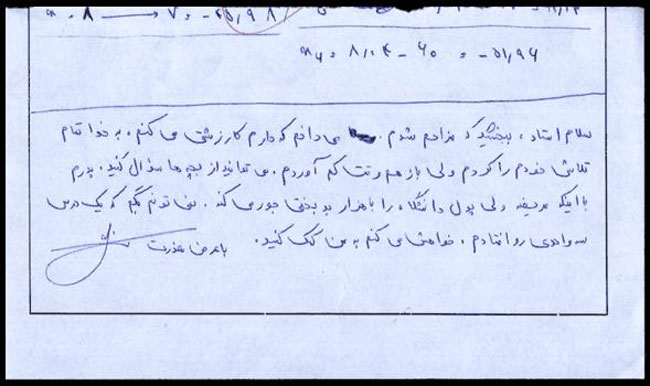 ۸ → ۷۰ = -۴۵,۹۸
= ۸,۰۴ - ۶۰ = -۵۱,۹۶
سلام استاد، ببخشید که مزاحم شدم. می دانم که دارم کار زشتی می کنم، به خدا تمام
تلاش خودم را کردم ولی باز هم وقت کم آوردم. می توانید از بچه ها سؤال کنید. پدرم
با اینکه مریضه ولی پول دانشگاه را با هزار بدبختی جور می کنه. نمی تونم بگم که یک درس
سه واحدی رو افتادم. خواهش می کنم به من کمک کنید.
با عرض معذرت